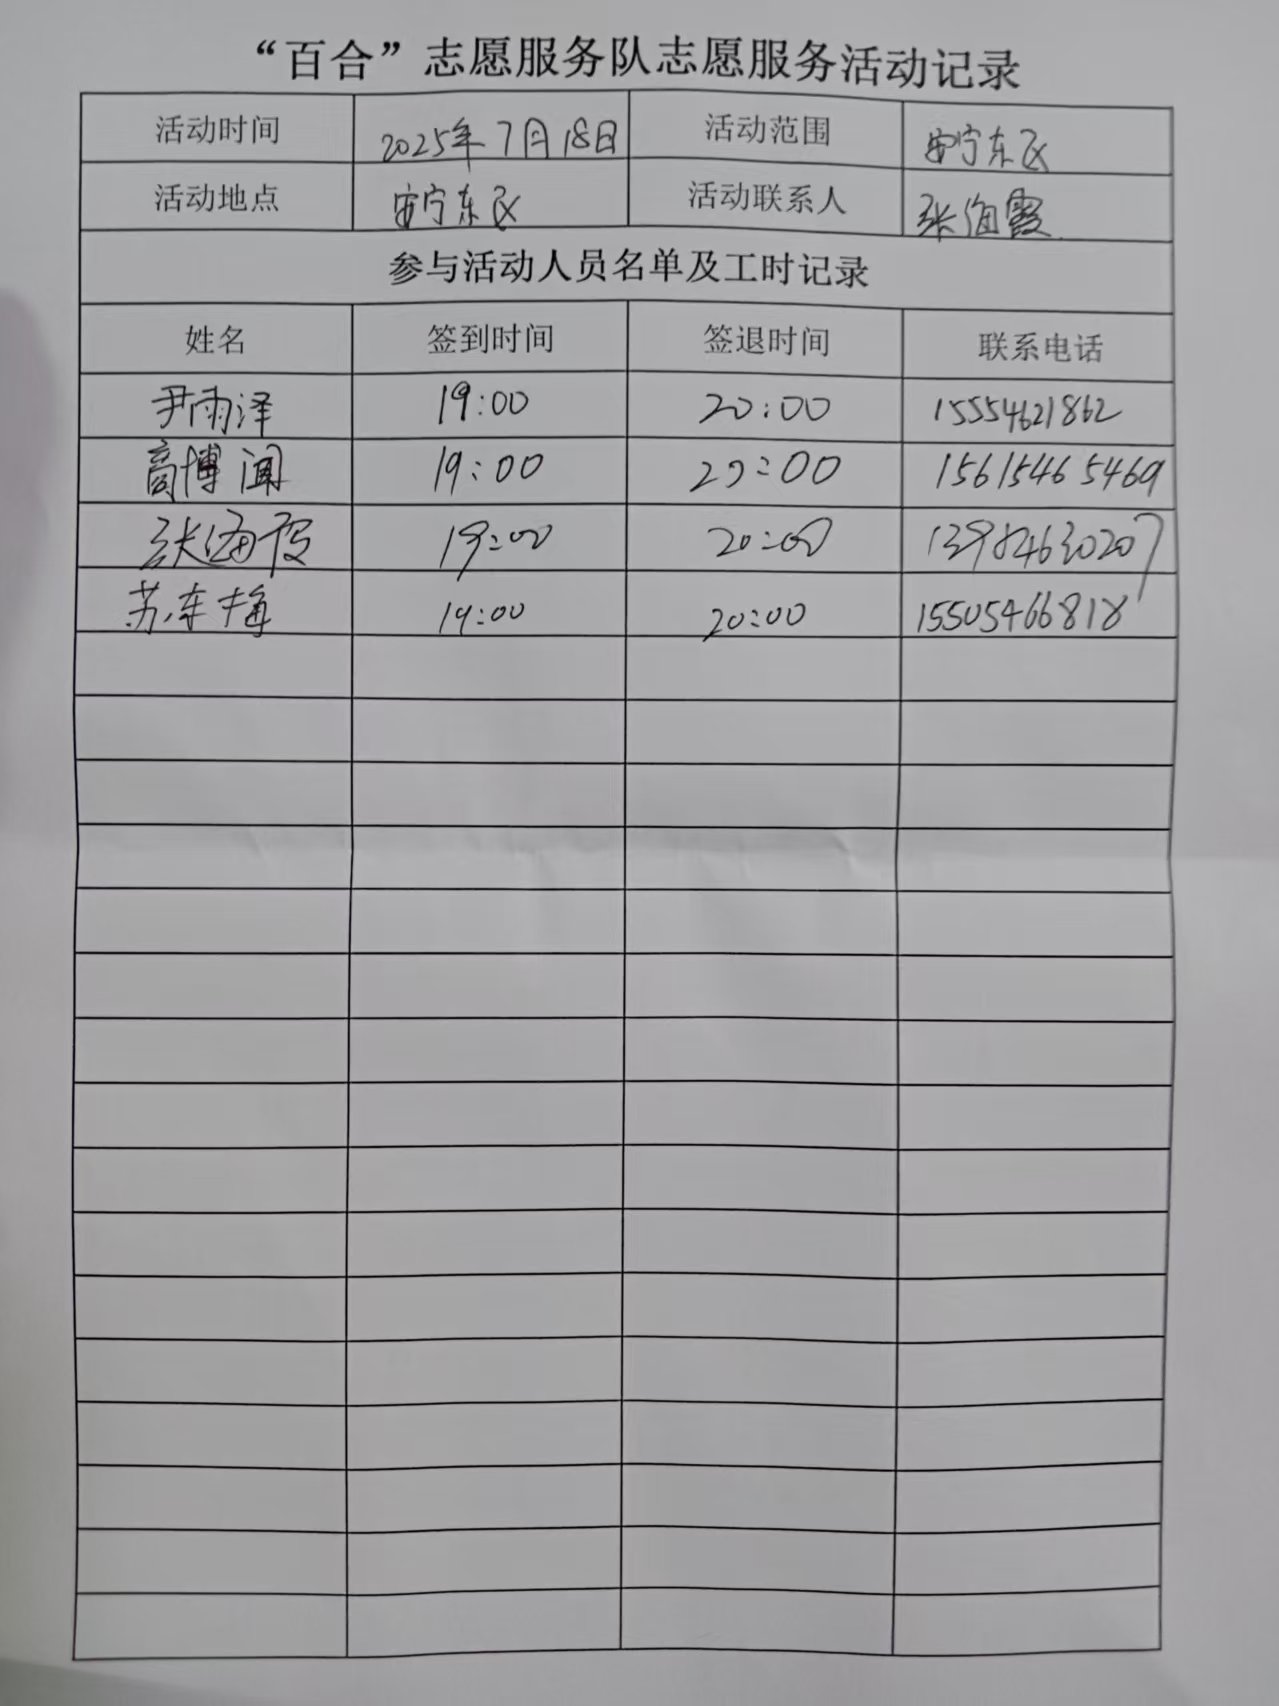 “百合”志愿服务队志愿服务活动记录
活动时间 2025年7月18日 活动范围 安宁东区
活动地点 安宁东区 活动联系人 张海霞
参与活动人员名单及工时记录
姓名 签到时间 签退时间 联系电话
尹雨泽 19:00 20:00 15554621862
商博闻 19:00 20:00 15615465469
张海霞 19:00 20:00
苏 梅 19:00 20:00 15505466818